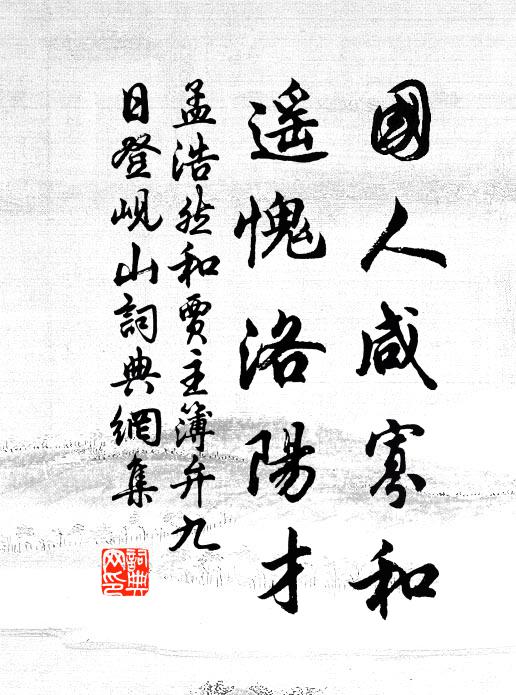 國人咸寡和
遥愧洛陽才
孟浩然和賈主簿弁九
日登峴山詞典網集
詞典網印